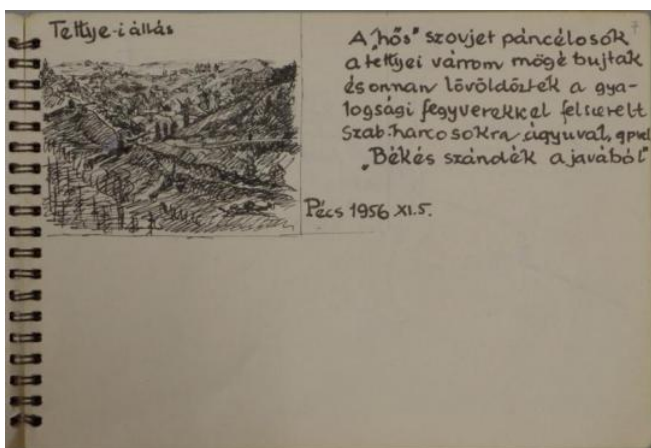 Tettye-i állás
7
A „hős" szovjet páncélosok
a tettyei várrom mögé bujtak
és onnan lövöldöztek a gya-
logsági fegyverekkel felszerelt
szab. harcosokra ágyuval, gpual
„Békés szándék a javából"
Pécs 1956 XI.5.